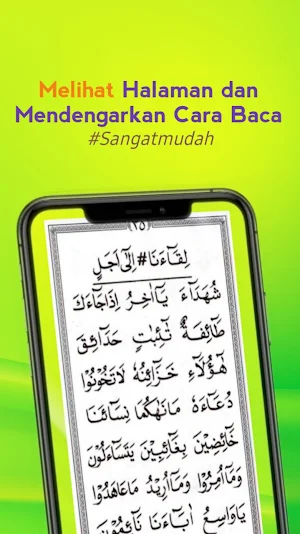 Melihat Halaman dan
Mendengarkan Cara Baca
#Sangatmudah
(٢٥)
لِقَآءَنَا # اِلٰٓى اَجَلٍ
شُهَدَآءَ يَآاٰخِرُ اِذَاجَآءَكَ
طَآئِفَةٌ ثٰٓئِبٰتٍ حَدَآئِقَ
هٰٓؤُلَآءِ خَزَآئِنُهٗ لَاتَخُوْنُوْا
دُعَآءَهٗ مَانَهٰكُمَا نِسَآئَنَا
خَآئِضِيْنَ بِغَآئِبِيْنَ يَتَسَآءَلُوْنَ
وَمَآاُمِرُوْا وَمَآاُرِيْدُ مَاعَاهَدُوْا
يَاوَاسِعُ اٰبَآءَنَا نَآئِمُوْنَ